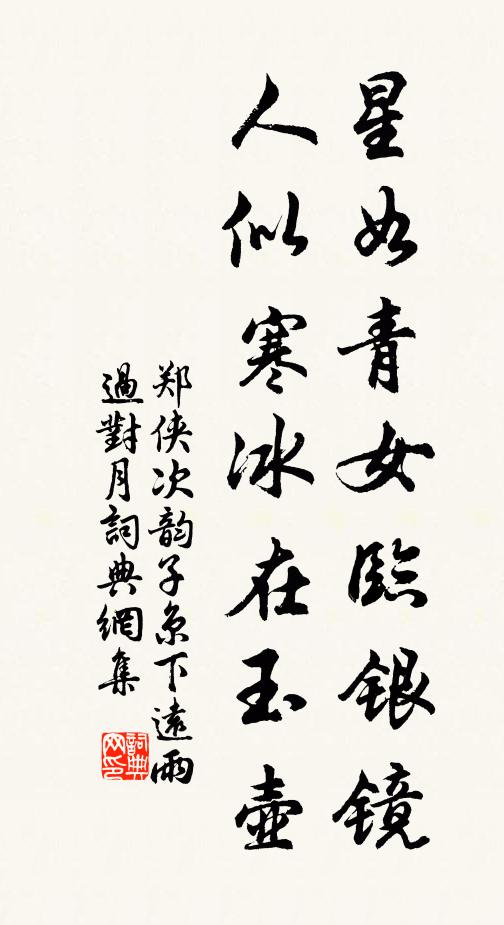 星如青女臨银镜
人似寒冰在玉壺
郑侠次韵子京下遠雨
過對月詞典網集
詞典
网印